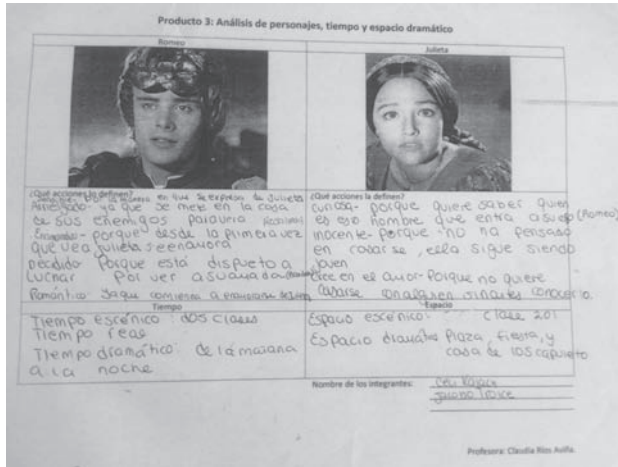 Producto 3: Análisis de personajes, tiempo y espacio dramático
Romeo
Julieta
¿Qué acciones lo definen?
por la manera en que se expresa de Julieta
Arriesgado - ya que se mete en la casa
de sus enemigos para verla
porque desde la primera vez
que vea Julieta se enamora
decidido Porque está dispueto a
Luchar Por ver a su amada
Romántico Ya que comienza a
¿Qué acciones la definen?
curiosa - porque quiere saber quien
es ese hombre que entra a su (Romeo)
inocente - porque no ha pensado
en casarse, ella sigue siendo
joven
cree en el amor - Porque no quiere
Casarse con alguien sin antes conocerlo.
Tiempo
Tiempo escénico: dos clases
Tiempo real
Tiempo dramático: de la mañana
a la noche
Espacio
Espacio escénico: clase 201
Espacio Plaza, fiesta, y
casa de los capuleto
Nombre de los integrantes:
Profesora: Claudia Ríos Aviña.